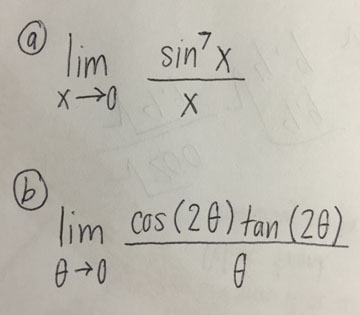 ⓐ lim x→0 sin⁷x / x
ⓑ lim θ→0 cos(2θ) tan(2θ) / θ